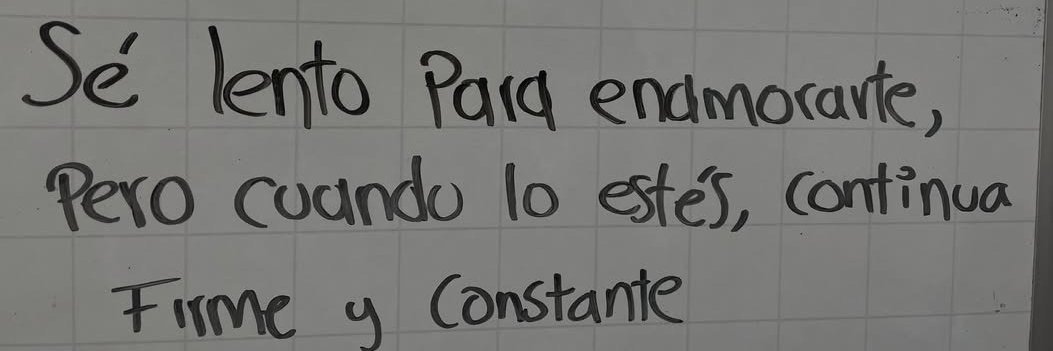 Sé lento Para enamorarte,
Pero cuando lo estés, continua
Firme y Constante